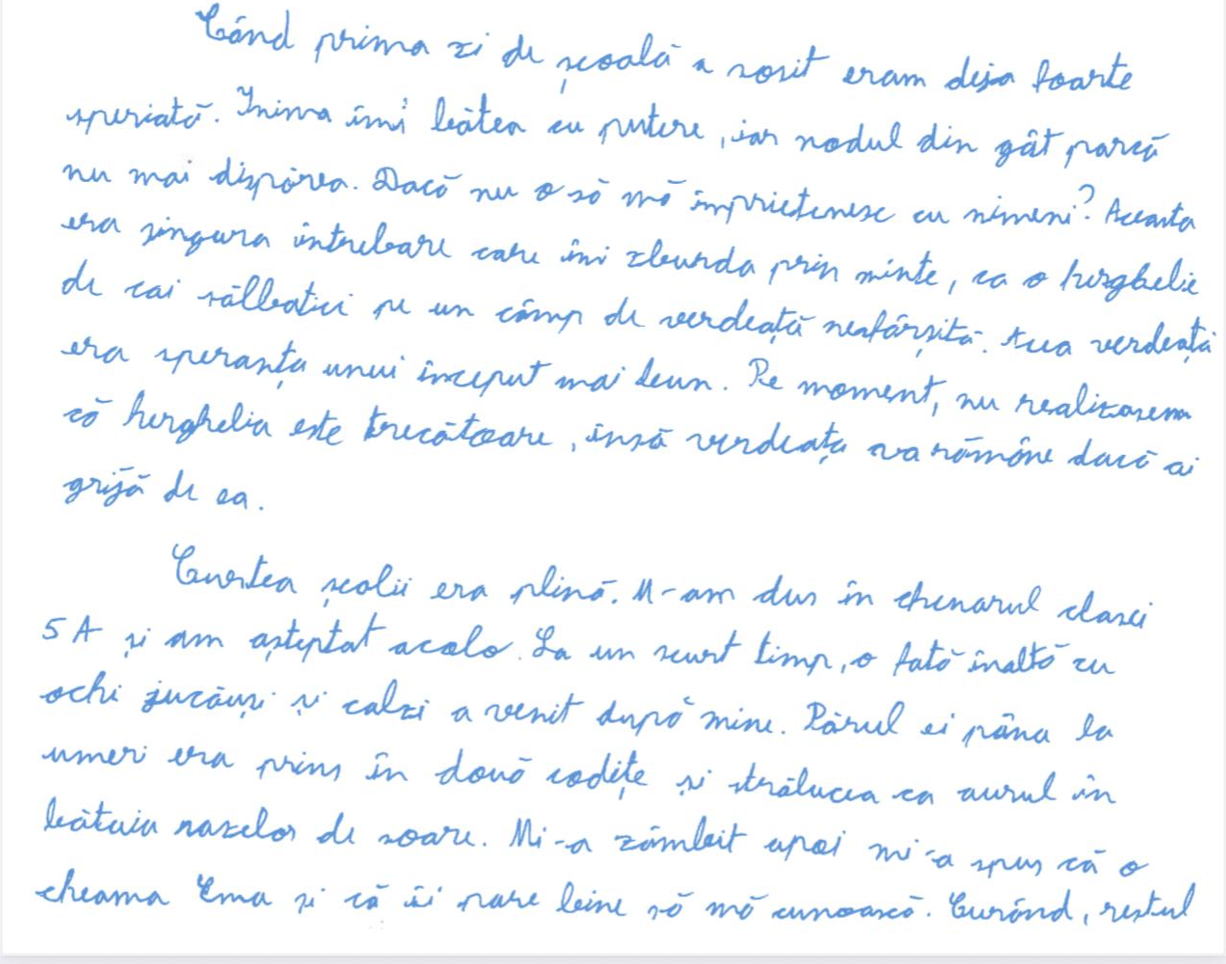 Când prima zi de școală a sosit eram deja foarte
speriată. Inima îmi bătea cu putere, iar nodul din gât parcă
nu mai dispărea. Dacă nu o să mă împrietenesc cu nimeni? Aceasta
era singura întrebare care îmi zburda prin minte, ca o herghelie
de cai sălbatici pe un câmp de verdeață nesfârșită. Acea verdeață
era speranța unui început mai bun. Pe moment, nu realizasem
că herghelia este trecătoare, însă verdeața va rămâne dacă ai
grijă de ea.
Curtea școlii era plină. M-am dus în chenarul clasei
5 A și am așteptat acolo. La un scurt timp, o fată înaltă cu
ochi jucăuși și calzi a venit după mine. Părul ei pâna la
umeri era prins în două codițe și strălucea ca aurul în
bătaia razelor de soare. Mi-a zâmbit apoi mi-a spus că o
cheama Ema și că îi pare bine să mă cunoască. Curând, restul